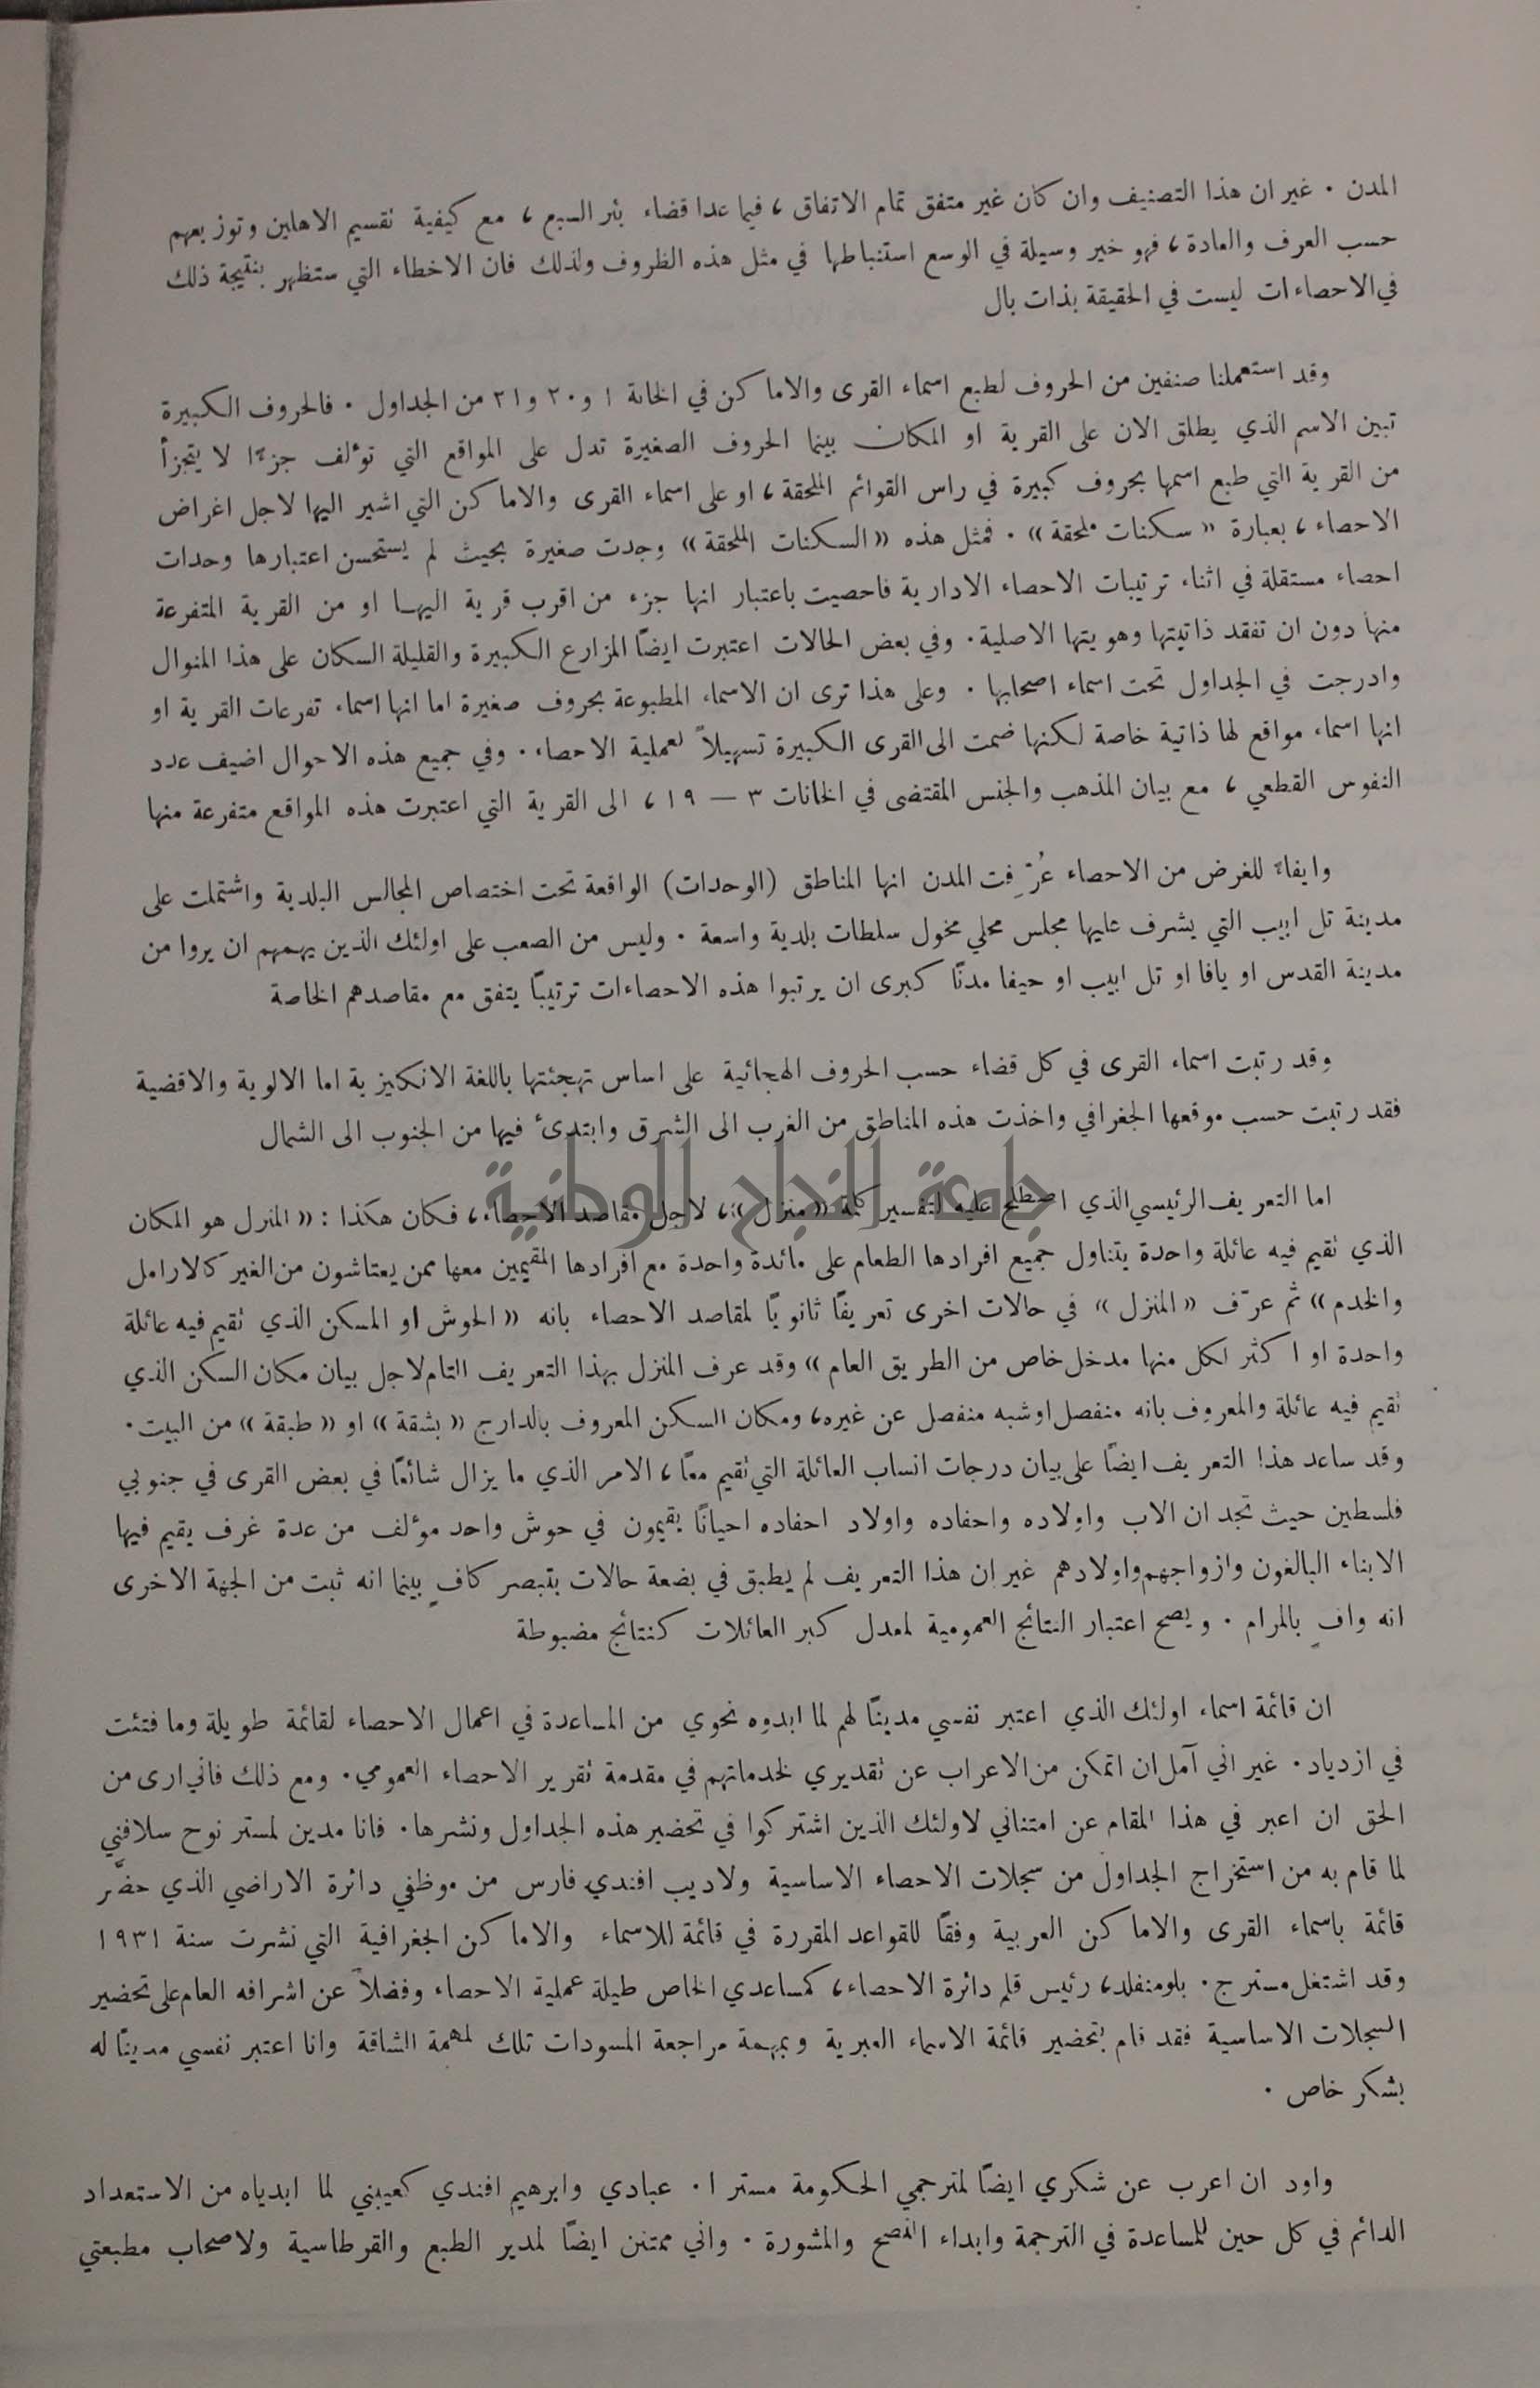 المدن . غير ان هذا التصنيف وان كان غير متفق تمام الاتفاق ، فيما عدا قضاء بئر السبع ، مع كيفية تقسيم الاهلين وتوزيعهم
حسب العرف والعادة ، فهو خير وسيلة في الوسع استنباطها في مثل هذه الظروف ولذلك فان الاخطاء التي ستظهر بنتيجة ذلك
في الاحصاءات ليست في الحقيقة بذات بال
وقد استعملنا صنفين من الحروف لطبع اسماء القرى والاماكن في الخانة ١ و٢٠ و٢١ من الجداول . فالحروف الكبيرة
تبين الاسم الذي يطلق الان على القرية او المكان بينما الحروف الصغيرة تدل على المواقع التي تؤلف جزءًا لا يتجزأ
من القرية التي طبع اسمها بحروف كبيرة في راس القوائم الملحقة ، او على اسماء القرى والاماكن التي اشير اليها لاجل اغراض
الاحصاء ، بعبارة « سكنات ملحقة » . فمثل هذه « السكنات الملحقة » وجدت صغيرة بحيث لم يستحسن اعتبارها وحدات
احصاء مستقلة في اثناء ترتيبات الاحصاء الادارية فاحصيت باعتبار انها جزء من اقرب قرية اليها او من القرية المتفرعة
منها دون ان تفقد ذاتيتها وهويتها الاصلية . وفي بعض الحالات اعتبرت ايضًا المزارع الكبيرة والقليلة السكان على هذا المنوال
وادرجت في الجداول تحت اسماء اصحابها . وعلى هذا ترى ان الاسماء المطبوعة بحروف صغيرة اما انها اسماء تفرعات القرية او
انها اسماء مواقع لها ذاتية خاصة لكنها ضمت الى القرى الكبيرة تسهيلاً لعملية الاحصاء . وفي جميع هذه الاحوال اضيف عدد
النفوس القطعي ، مع بيان المذهب والجنس المقتضى في الخانات ٣ — ١٩ ، الى القرية التي اعتبرت هذه المواقع متفرعة منها
وايفاءً للغرض من الاحصاء عُرِّفت المدن انها المناطق (الوحدات) الواقعة تحت اختصاص المجالس البلدية واشتملت على
مدينة تل ابيب التي يشرف عليها مجلس محلي مخول سلطات بلدية واسعة . وليس من الصعب على اولئك الذين يهمهم ان يروا من
مدينة القدس او يافا او تل ابيب او حيفا مدنًا كبرى ان يرتبوا هذه الاحصاءات ترتيبًا يتفق مع مقاصدهم الخاصة
وقد رتبت اسماء القرى في كل قضاء حسب الحروف الهجائية على اساس تهجئتها باللغة الانكليزية اما الالوية والاقضية
فقد رتبت حسب موقعها الجغرافي واخذت هذه المناطق من الغرب الى الشرق وابتدئ فيها من الجنوب الى الشمال
جامعة النجاح الوطنية
اما التعريف الرئيسي الذي اصطلح عليه لتفسير كلمة « منزل » ، لاجل مقاصد الاحصاء ، فكان هكذا : « المنزل هو المكان
الذي تقيم فيه عائلة واحدة يتناول جميع افرادها الطعام على مائدة واحدة مع افرادها المقيمين معها ممن يعتاشون من الغير كالارامل
والخدم » ثم عرّف « المنزل » في حالات اخرى تعريفًا ثانويًا لمقاصد الاحصاء بانه « الحوش او المسكن الذي تقيم فيه عائلة
واحدة او اكثر لكل منها مدخل خاص من الطريق العام » وقد عرف المنزل بهذا التعريف التام لاجل بيان مكان السكن الذي
تقيم فيه عائلة والمعروف بانه منفصل او شبه منفصل عن غيره ، ومكان السكن المعروف بالدارج « بشقة » او « طبقة » من البيت .
وقد ساعد هذا التعريف ايضًا على بيان درجات انساب العائلة التي تقيم معًا ، الامر الذي ما يزال شائعًا في بعض القرى في جنوبي
فلسطين حيث تجد ان الاب واولاده واحفاده واولاد احفاده احيانًا يقيمون في حوش واحد مؤلف من عدة غرف يقيم فيها
الابناء البالغون وازواجهم واولادهم غير ان هذا التعريف لم يطبق في بضعة حالات بتبصر كافٍ بينما انه ثبت من الجهة الاخرى
انه وافٍ بالمرام . ويصح اعتبار النتائج العمومية لمعدل كبر العائلات كنتائج مضبوطة
ان قائمة اسماء اولئك الذي اعتبر نفسي مدينًا لهم لما ابدوه نحوي من المساعدة في اعمال الاحصاء لقائمة طويلة وما فتئت
في ازدياد . غير اني آمل ان اتمكن من الاعراب عن تقديري لخدماتهم في مقدمة تقرير الاحصاء العمومي . ومع ذلك فاني ارى من
الحق ان اعبر في هذا المقام عن امتناني لاولئك الذين اشتركوا في تحضير هذه الجداول ونشرها . فانا مدين لمستر نوح سلافني
لما قام به من استخراج الجداول من سجلات الاحصاء الاساسية ولاديب افندي فارس من موظفي دائرة الاراضي الذي حضّر
قائمة باسماء القرى والاماكن العربية وفقًا للقواعد المقررة في قائمة للاسماء والاماكن الجغرافية التي نشرت سنة ١٩٣١
وقد اشتغل مستر ج . بلومنفلد ، رئيس قلم دائرة الاحصاء ، كمساعدي الخاص طيلة عملية الاحصاء وفضلاً عن اشرافه العام على تحضير
السجلات الاساسية فقد قام بتحضير قائمة الاسماء العبرية وبمهمة مراجعة المسودات تلك لمهمة الشاقة وانا اعتبر نفسي مدينًا له
بشكر خاص .
واود ان اعرب عن شكري ايضًا لمترجمي الحكومة مستر ا . عبادي وابرهيم افندي كعيبني لما ابدياه من الاستعداد
الدائم في كل حين للمساعدة في الترجمة وابداء النصح والمشورة . واني ممتنن ايضًا لمدير الطبع والقرطاسية ولاصحاب مطبعتي